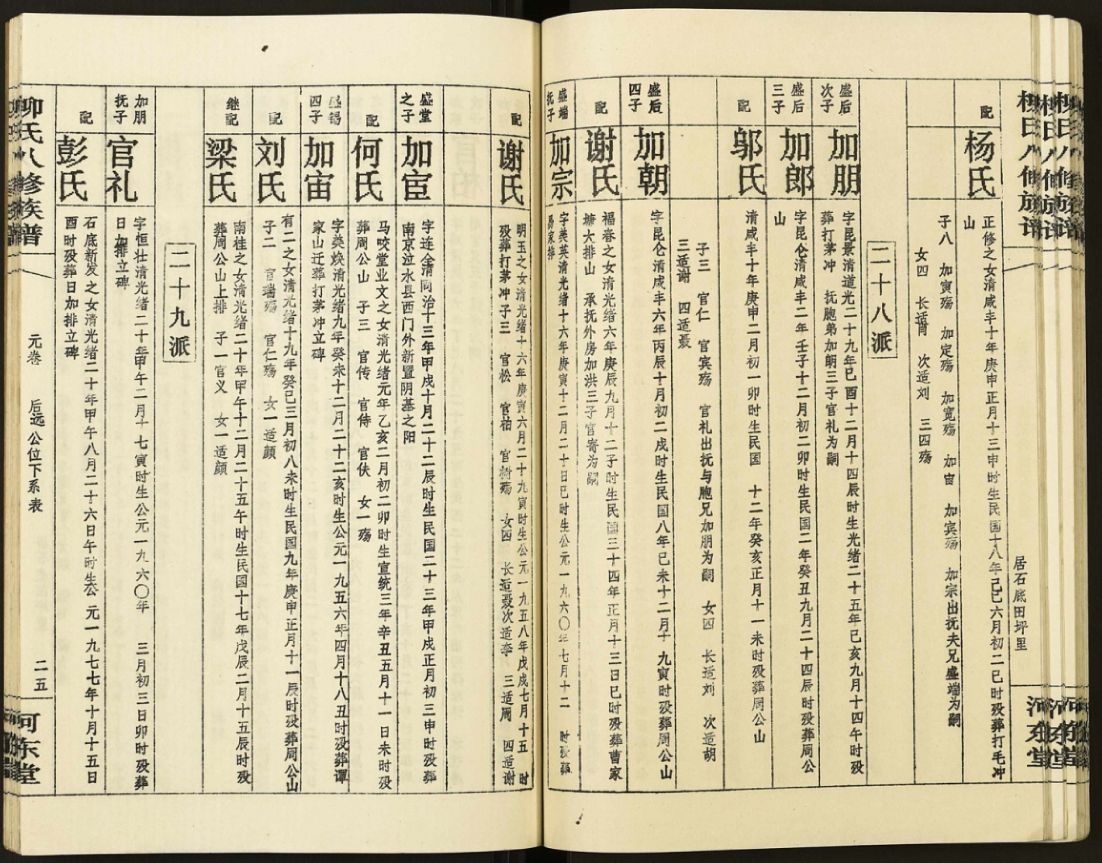 柳氏八修族谱
河东堂
居石底田坪里
配
杨氏
正修之女清咸丰十年庚申正月十三申时生民国十八年己巳六月初二巳时殁葬打毛冲
山
子八 加寅殇 加定殇 加宽殇 加宙 加宾殇 加宗出抚夫兄盛端为嗣
女四 长适肖 次适刘 三四殇
二十八派
盛后
次子
加朋
字昆景清道光二十九年己酉十二月十四辰时生光绪二十五年己亥九月十四午时殁
葬打茅冲 抚胞弟加朝三子官礼为嗣
盛后
三子
加郎
字昆仑清咸丰二年壬子十二月初二卯时生民国二年癸丑九月二十四辰时殁葬周公
山
配
邬氏
清咸丰十年庚申二月初一卯时生民国 十二年癸亥正月十一未时殁葬周公山
子三 官仁 官宾殇 官礼出抚与胞兄加朋为嗣 女四 长适刘 次适胡
三适谢 四适聂
盛后
四子
加朝
字昆仑清咸丰六年丙辰十月初二戌时生民国八年己未十二月十 九寅时殁葬周公山
配
谢氏
福春之女清光绪六年庚辰九月十二子时生民国三十四年正月十三日巳时殁葬曹家
塘大排山 承抚外房加洪三子官寄为嗣
盛端
抚子
加宗
字美英清光绪十六年庚寅十二月二十日巳时生公元一九六〇年七月十二 时殁葬
家排
配
谢氏
明玉之女清光绪十六年庚寅六月二十九寅时生公元一九五八年戊戌七月十五 时
殁葬打茅冲子三 官松 官柏 官树殇 女四 长适聂次适李 三适周 四适谢
盛堂
之子
加宦
字连全清同治十三年甲戌十月二十二辰时生民国二十三年甲戌正月初三申时殁葬
南京泣水县西门外新置阴基之阳
配
何氏
马咬堂业文之女清光绪元年乙亥二月初二卯时生宣统三年辛丑五月十一日未时殁
葬周公山 子三 官传 官侍 官伕 女一殇
盛锡
四子
加宙
字美焕清光绪九年癸未十二月二十二亥时生公元一九五六年四月十八丑时殁葬谭
家山迁葬打茅冲立碑
配
刘氏
有二之女清光绪十九年癸巳三月初八未时生民国九年庚申正月十一辰时殁葬周公山
子二 官瑞殇 官仁殇 女一适颜
继配
梁氏
南桂之女清光绪二十年甲午十二月二十五午时生民国十七年戊辰二月十五辰时殁
葬周公山上排 子一官义 女一适颜
二十九派
加朋
抚子
官礼
字恒壮清光绪二十年甲午二月十七寅时生公元一九六〇年 三月初三日卯时殁葬
日加排立碑
配
彭氏
石底新发之女清光绪二十年甲午八月二十六日午时生公元一九七七年十月十五日
酉时殁葬日加排立碑
柳氏八修族谱
元卷
后远公位下系表
二五
河东堂